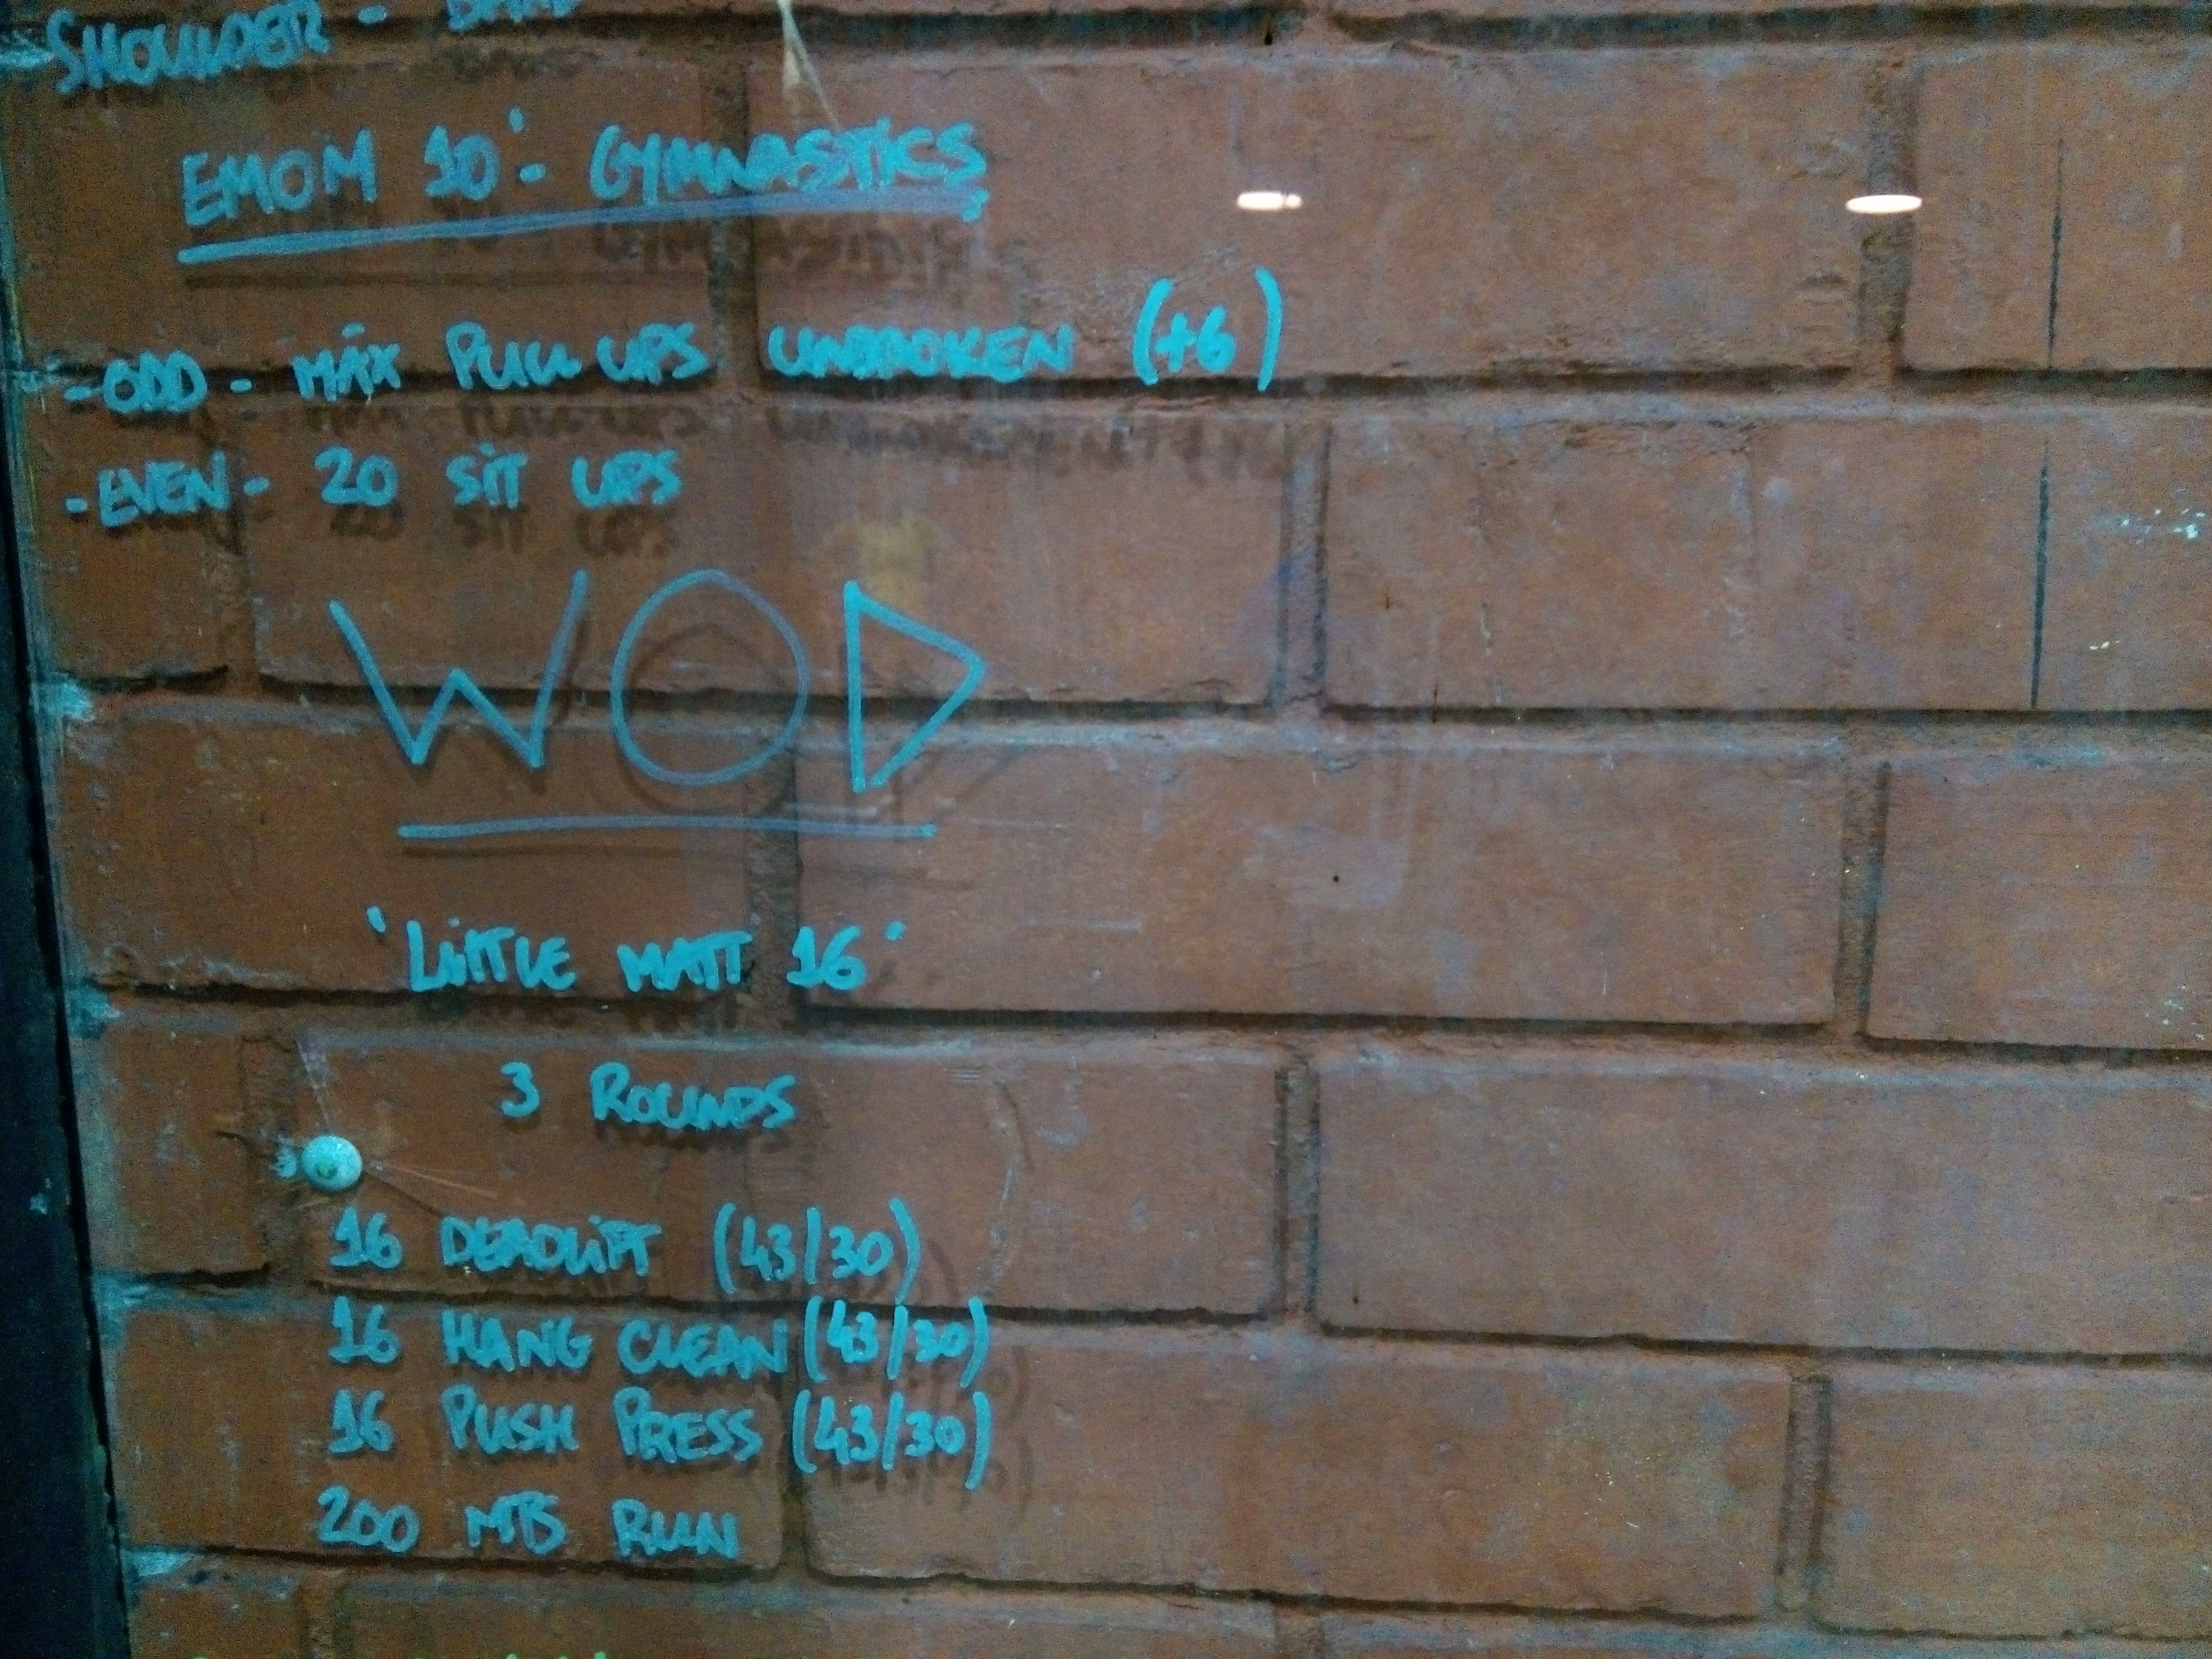 SHOULDER - BAND
EMOM 10' - GYMNASTICS
- ODD - MÁX PULL UPS UNBROKEN (+6)
- EVEN - 20 SIT UPS
WOD
'LITTLE MATT 16'
3 ROUNDS
16 DEADLIFT (43/30)
16 HANG CLEAN (43/30)
16 PUSH PRESS (43/30)
200 MTS RUN